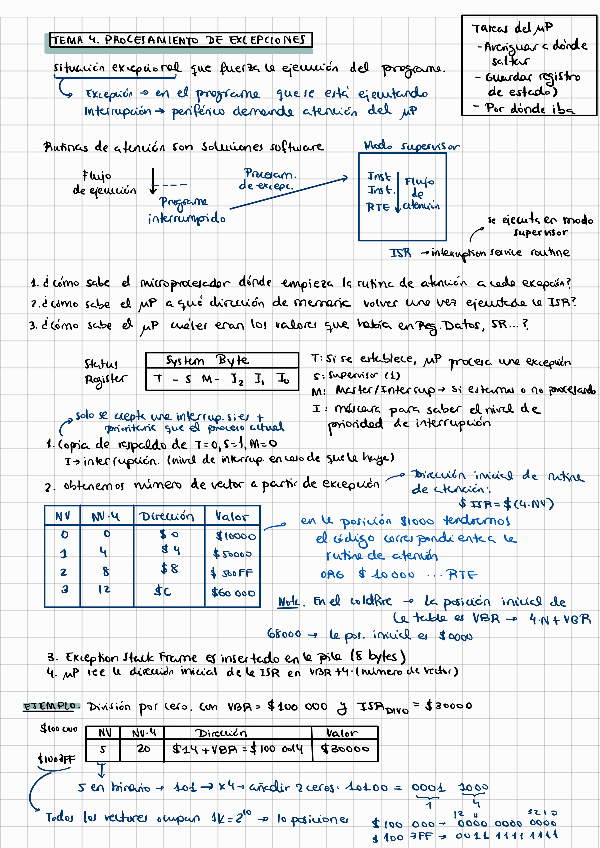 TEMA 4. PROCESAMIENTO DE EXCEPCIONES
Situación excepcional que fuerza la ejecución del programa.
Excepción → en el programa que se está ejecutando
Interrupción → periférico demanda atención del μP
Tareas del μP
- Averiguar a dónde
saltar
- Guardar registro
de estado)
- Por dónde iba
Rutinas de atención son soluciones software
Modo supervisor
Flujo
de ejecución
Programa
interrumpido
Procesam.
de excepc.
Inst
Inst.
RTE
Flujo
de
atención
se ejecuta en modo
supervisor
ISR → interruption service routine
1. ¿Cómo sabe el microprocesador dónde empieza la rutina de atención a cada excepción?
2. ¿Cómo sabe el μP a qué dirección de memoria volver una vez ejecutada la ISR?
3. ¿Cómo sabe el μP cuáles eran los valores que había en Reg. Datos, SR...?
Status
Register
System Byte
T - S M - I2 I1 I0
T: Si se establece, μP procesa una excepción
S: Supervisor (1)
M: Master/Interrup → si estamos o no procesando
I: máscara para saber el nivel de
prioridad de interrupción
solo se acepta una interrup. si es +
prioritaria que el proceso actual
1. Copia de respaldo de T=0, S=1, M=0
I → interrupción. (nivel de interrup. en caso de que la haya)
2. obtenemos número de vector a partir de excepción
Dirección inicial de rutina
de atención:
$ ISR = $(4·NV)
NV NV·4 Dirección Valor
0 0 $0 $10000
1 4 $4 $50000
2 8 $8 $500FF
3 12 $C $60000
en la posición $1000 tendremos
el código correspondiente a la
rutina de atención
ORG $10000 ... RTE
Nota. En el coldfire → la posición inicial de
la table es VBR → 4·N+VBR
68000 → la pos. inicial es $0000
3. Exception Stack Frame es insertado en la pila (8 bytes)
4. μP lee la dirección inicial de la ISR en VBR+4·(número de vector)
EJEMPLO. División por cero, con VBR = $100 000 y ISR DIV0 = $30000
$100 000
$1003FF
NV NV·4 Dirección Valor
5 20 $14 + VBR = $100 0014 $30000
5 en binario → 101 → x4 → añadir 2 ceros: 10100 = 0001 1000
1 4
Todos los vectores ocupan 1K = 2^10 → 10 posiciones
12 8 3210
$100 000 → 0000 0000 0000
$100 3FF → 0011 1111 1111